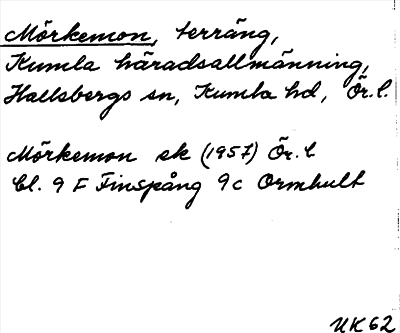 Mörkemon, terräng,
Kumla häradsallmänning,
Hallsbergs sn, Kumla hd, Ör. l.
Mörkemon ek (1957) Ör. l
bl. 9 F Finspång 9c Ormhult
UK62